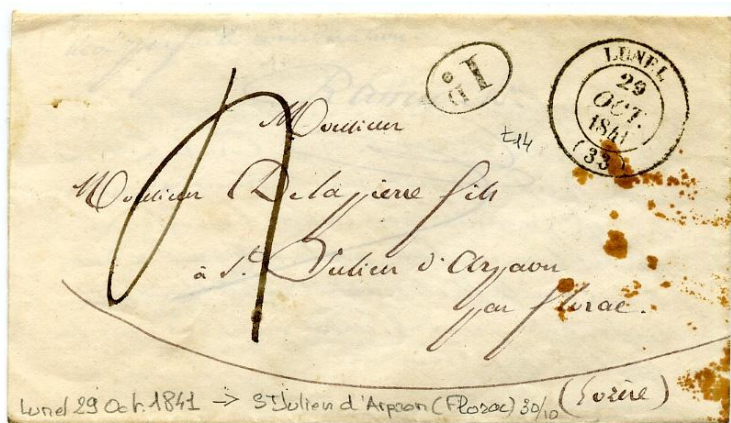 1D
LUNEL
29
OCT.
1841
(33)
Monsieur
t14
Monsieur Delapierre fils
à St. Julien d'Arpaon
par florac.
(Lozère)
Lunel 29 Oct. 1841 → St Julien d'Arpaon (Florac) 30/10